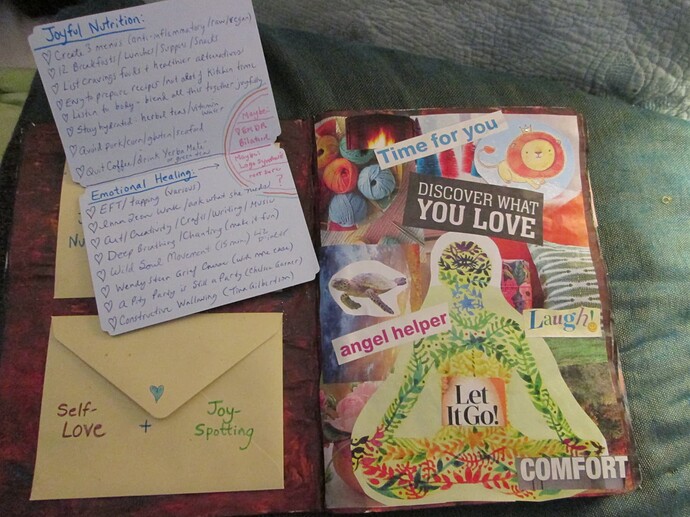 Joyful Nutrition:
♡ Create 3 menus (anti-inflammatory/raw/vegan)
♡ 12 Breakfasts/Lunches/Suppers/Snacks
♡ List Cravings foods + healthier alternatives
♡ Easy to prepare recipes/not a lot of kitchen time
♡ Listen to body + thank all this together joyfully
♡ Stay hydrated - herbal teas/vitamin water
♡ Quit pork/corn/gluten/seafood
♡ Quit Coffee/drink Yerba Mate
or green tea
Maybe:
EMDR
Bilateral
Maybe:
?
Emotional Healing:
♡ EFT/tapping (various)
♡ Inner Teen Work/ask what she needs
♡ Art/Creativity/Crafts/Writing/Music
♡ Deep Breathing/Chanting (make it fun)
♡ Wild Soul Movement (15 min)
♡ Grief Course (with more ease)
♡ A Pity Party is Still a Party
♡ Constructive Wallowing (Tina Gilbertson)
Nu
Self-Love + Joy-Spotting
Time for you
DISCOVER WHAT
YOU LOVE
angel helper
Laugh!
Let
It Go!
COMFORT